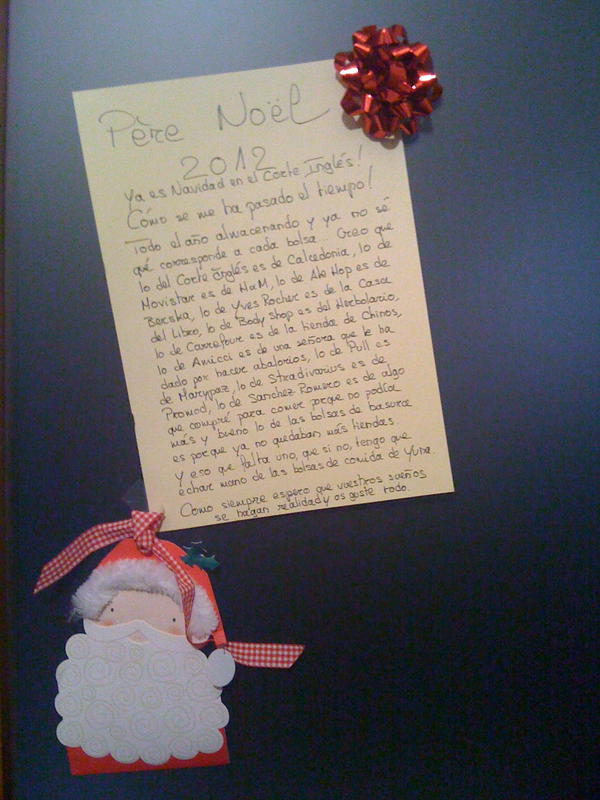 Père Noël
2012
Ya es Navidad en el Corte Inglés!
Cómo se me ha pasado el tiempo!
Todo el año almacenando y ya no sé
qué corresponde a cada bolsa... Creo que
lo del Corte Inglés es de Calcedonia, lo de
Movistar es de H&M, lo de Ale Hop es de
Berska, lo de Yves Rocher es de la Casa
del Libro, lo de Body shop es del Herbolario,
lo de Carrefour es de la tienda de Chinos,
lo de Amicci es de una señora que le ha
dado por hacer abalorios, lo de Pull es
de Marypaz, lo de Stradivarius es de
Promod, lo de Sanchez Romero es de algo
que compré para comer porque no podía
más y bueno lo de las bolsas de basura
es porque ya no quedaban más tiendas
y eso que falta uno, que si no, tengo que
echar mano de las bolsas de comida de Yuna.
Como siempre espero que vuestros sueños
se hagan realidad y os guste todo.